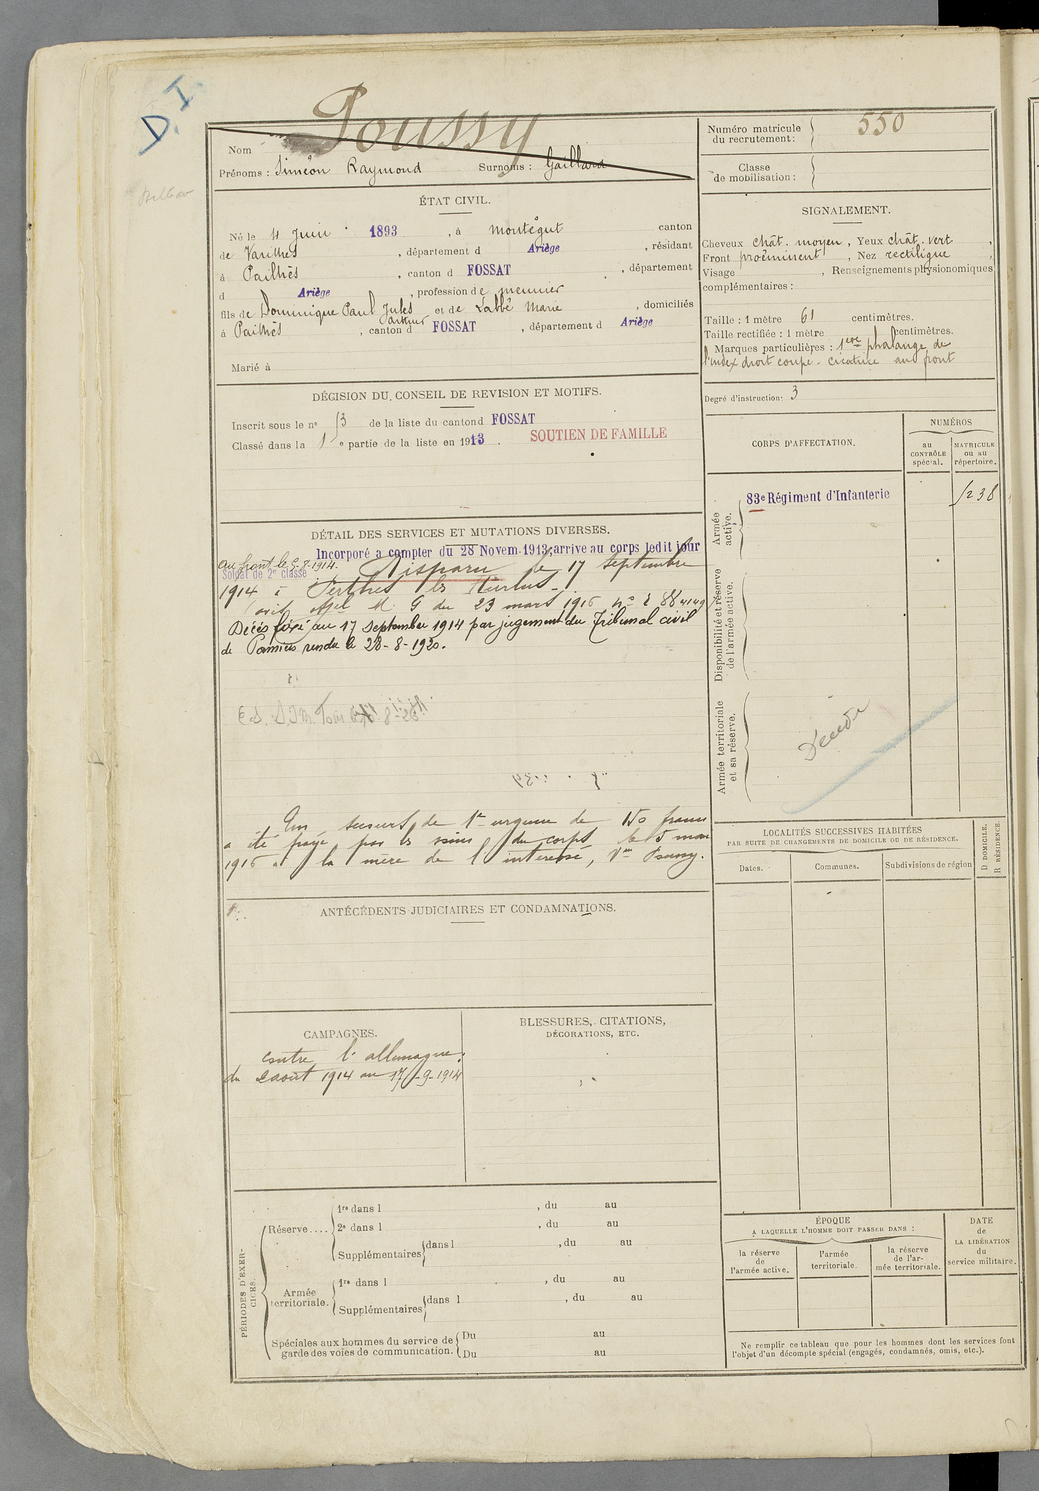 D. I.
Poussy
Nom
Prénoms : Siméon Raymond Surnoms : Gaillard
Numéro matricule du recrutement : 550
Classe de mobilisation :
ÉTAT CIVIL.
Né le 4 Juin 1893, à Montégut canton
de Varilhes, département d Ariège, résidant
à Pailhès, canton d FOSSAT, département
d Ariège, profession de meunier
fils de Dominique Paul Jules Arthur et de Labbé Marie, domiciliés
à Pailhès, canton d FOSSAT, département d Ariège
Marié à
SIGNALEMENT.
Cheveux chât. moyen, Yeux chât. vert,
Front proéminent, Nez rectiligne,
Visage , Renseignements physionomiques
complémentaires :
Taille : 1 mètre 61 centimètres.
Taille rectifiée : 1 mètre centimètres.
Marques particulières : 1ère phalange de
l'index droit coupé - cicatrice au front
Degré d'instruction : 3
DÉCISION DU CONSEIL DE REVISION ET MOTIFS.
Inscrit sous le n° 13 de la liste du canton d FOSSAT
Classé dans la 1e partie de la liste en 1913.
SOUTIEN DE FAMILLE
DÉTAIL DES SERVICES ET MUTATIONS DIVERSES.
Incorporé à compter du 28 Novem. 1913, arrive au corps ledit jour
Au front le 5.8.1914.
Soldat de 2e classe
Disparu le 17 septembre
1914 à Perthes les Hurlus -
avis offel M. G du 23 mars 1916 n°
Décès fixé au 17 Septembre 1914 par jugement du Tribunal civil
de Pamiers rendu le 28-8-1920.
Un secours de 1re urgence de 150 francs
a été payé par les soins du corps le 5 mai
1916 à la mère de l'intéressé, Vve Poussy.
CORPS D'AFFECTATION.
NUMÉROS
au CONTRÔLE spécial.
MATRICULE ou au répertoire.
Armée active.
83e Régiment d'Infanterie
1238
Disponibilité et réserve de l'armée active.
Armée territoriale et sa réserve.
Décédé
LOCALITÉS SUCCESSIVES HABITÉES
PAR SUITE DE CHANGEMENTS DE DOMICILE OU DE RÉSIDENCE.
Dates.
Communes.
Subdivisions de région
D DOMICILE.
R RÉSIDENCE.
ANTÉCÉDENTS JUDICIAIRES ET CONDAMNATIONS.
CAMPAGNES.
contre l'allemagne.
du 2 aout 1914 au 17-9-1914
BLESSURES, CITATIONS,
DÉCORATIONS, ETC.
PÉRIODES D'EXERCICES.
Réserve....
1re dans l , du au
2e dans l , du au
Supplémentaires dans l , du au
Armée territoriale.
1re dans l , du au
Supplémentaires dans l , du au
Spéciales aux hommes du service de
garde des voies de communication.
Du au
Du au
ÉPOQUE
A LAQUELLE L'HOMME DOIT PASSER DANS :
la réserve de l'armée active.
l'armée territoriale.
la réserve de l'armée territoriale.
DATE de LA LIBÉRATION du service militaire.
Ne remplir ce tableau que pour les hommes dont les services font
l'objet d'un décompte spécial (engagés, condamnés, omis, etc.).